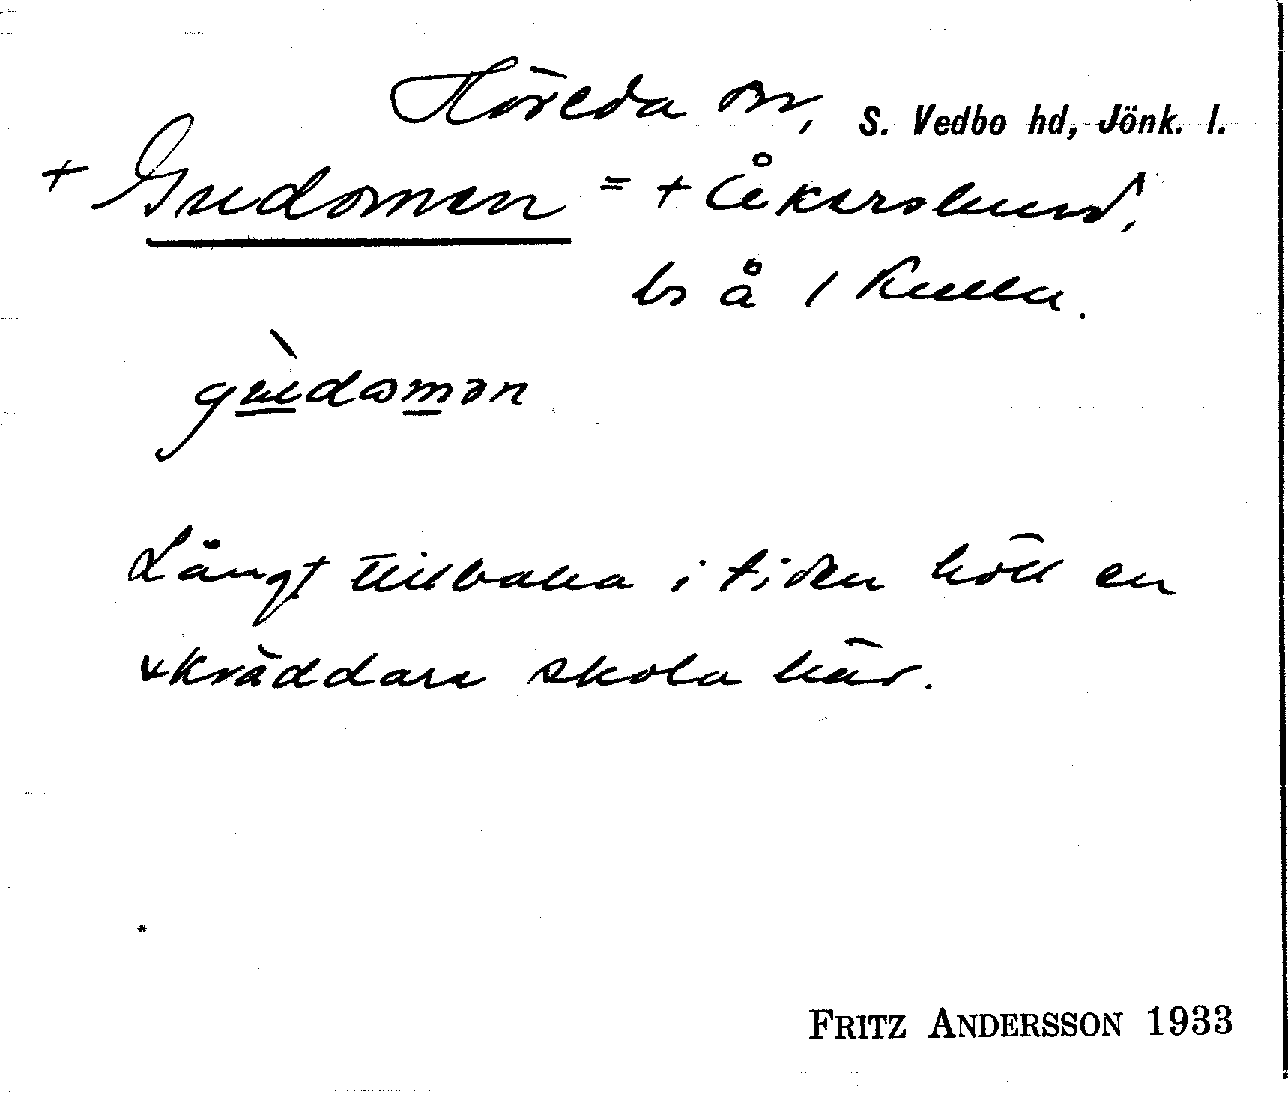 Höreda sn, S. Vedbo hd, Jönk. l.
+ Gudsmon = + Åkerslund,
ls å 1 Kulla.
gudsmon
Långt tillbaka i tiden höll en
skräddare skola här.
FRITZ ANDERSSON 1933